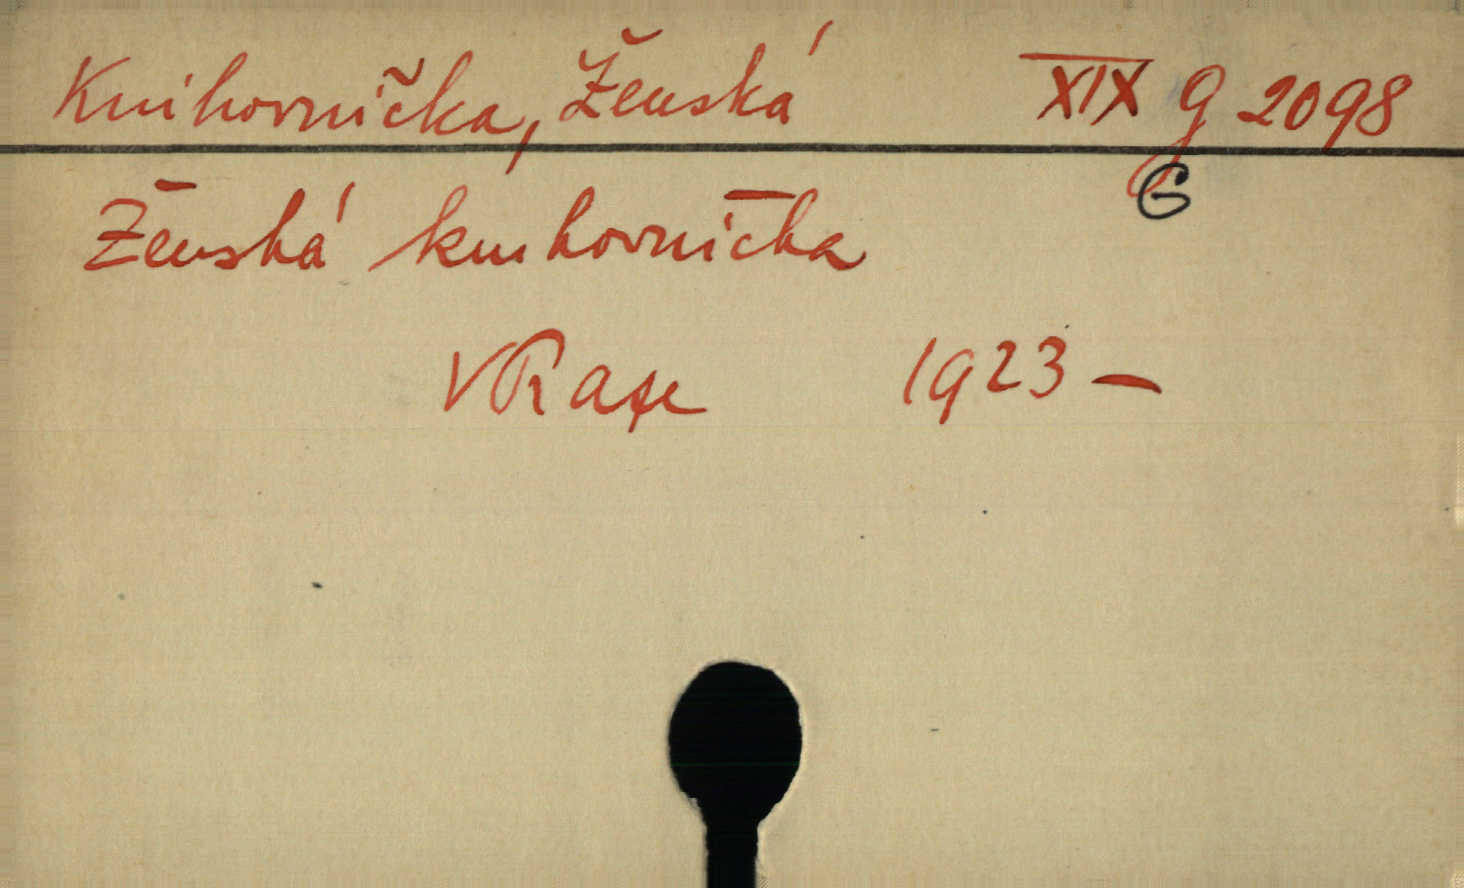 Knihovnička, Ženská XIX g 2098
G
Ženská knihovnička
V Praze 1923 —